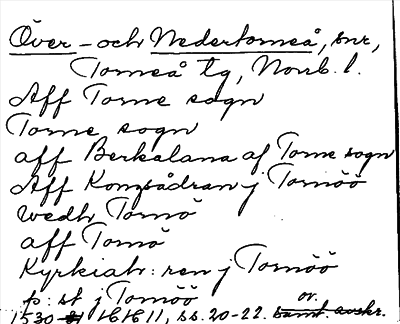 Över- och Nedertorneå, snr,
Torneå tg, Norrb. l.
Aff Torne sogn
Torne sogn
aff Berkalana af Torne sogn
Aff Kompådran j Tornöö
wedh Tornö
aff Tornö
Kyrkiatr: ren j Tornöö
p: st j Tornöö
1530 1616 11, ss. 20-22. or. samt. avskr.